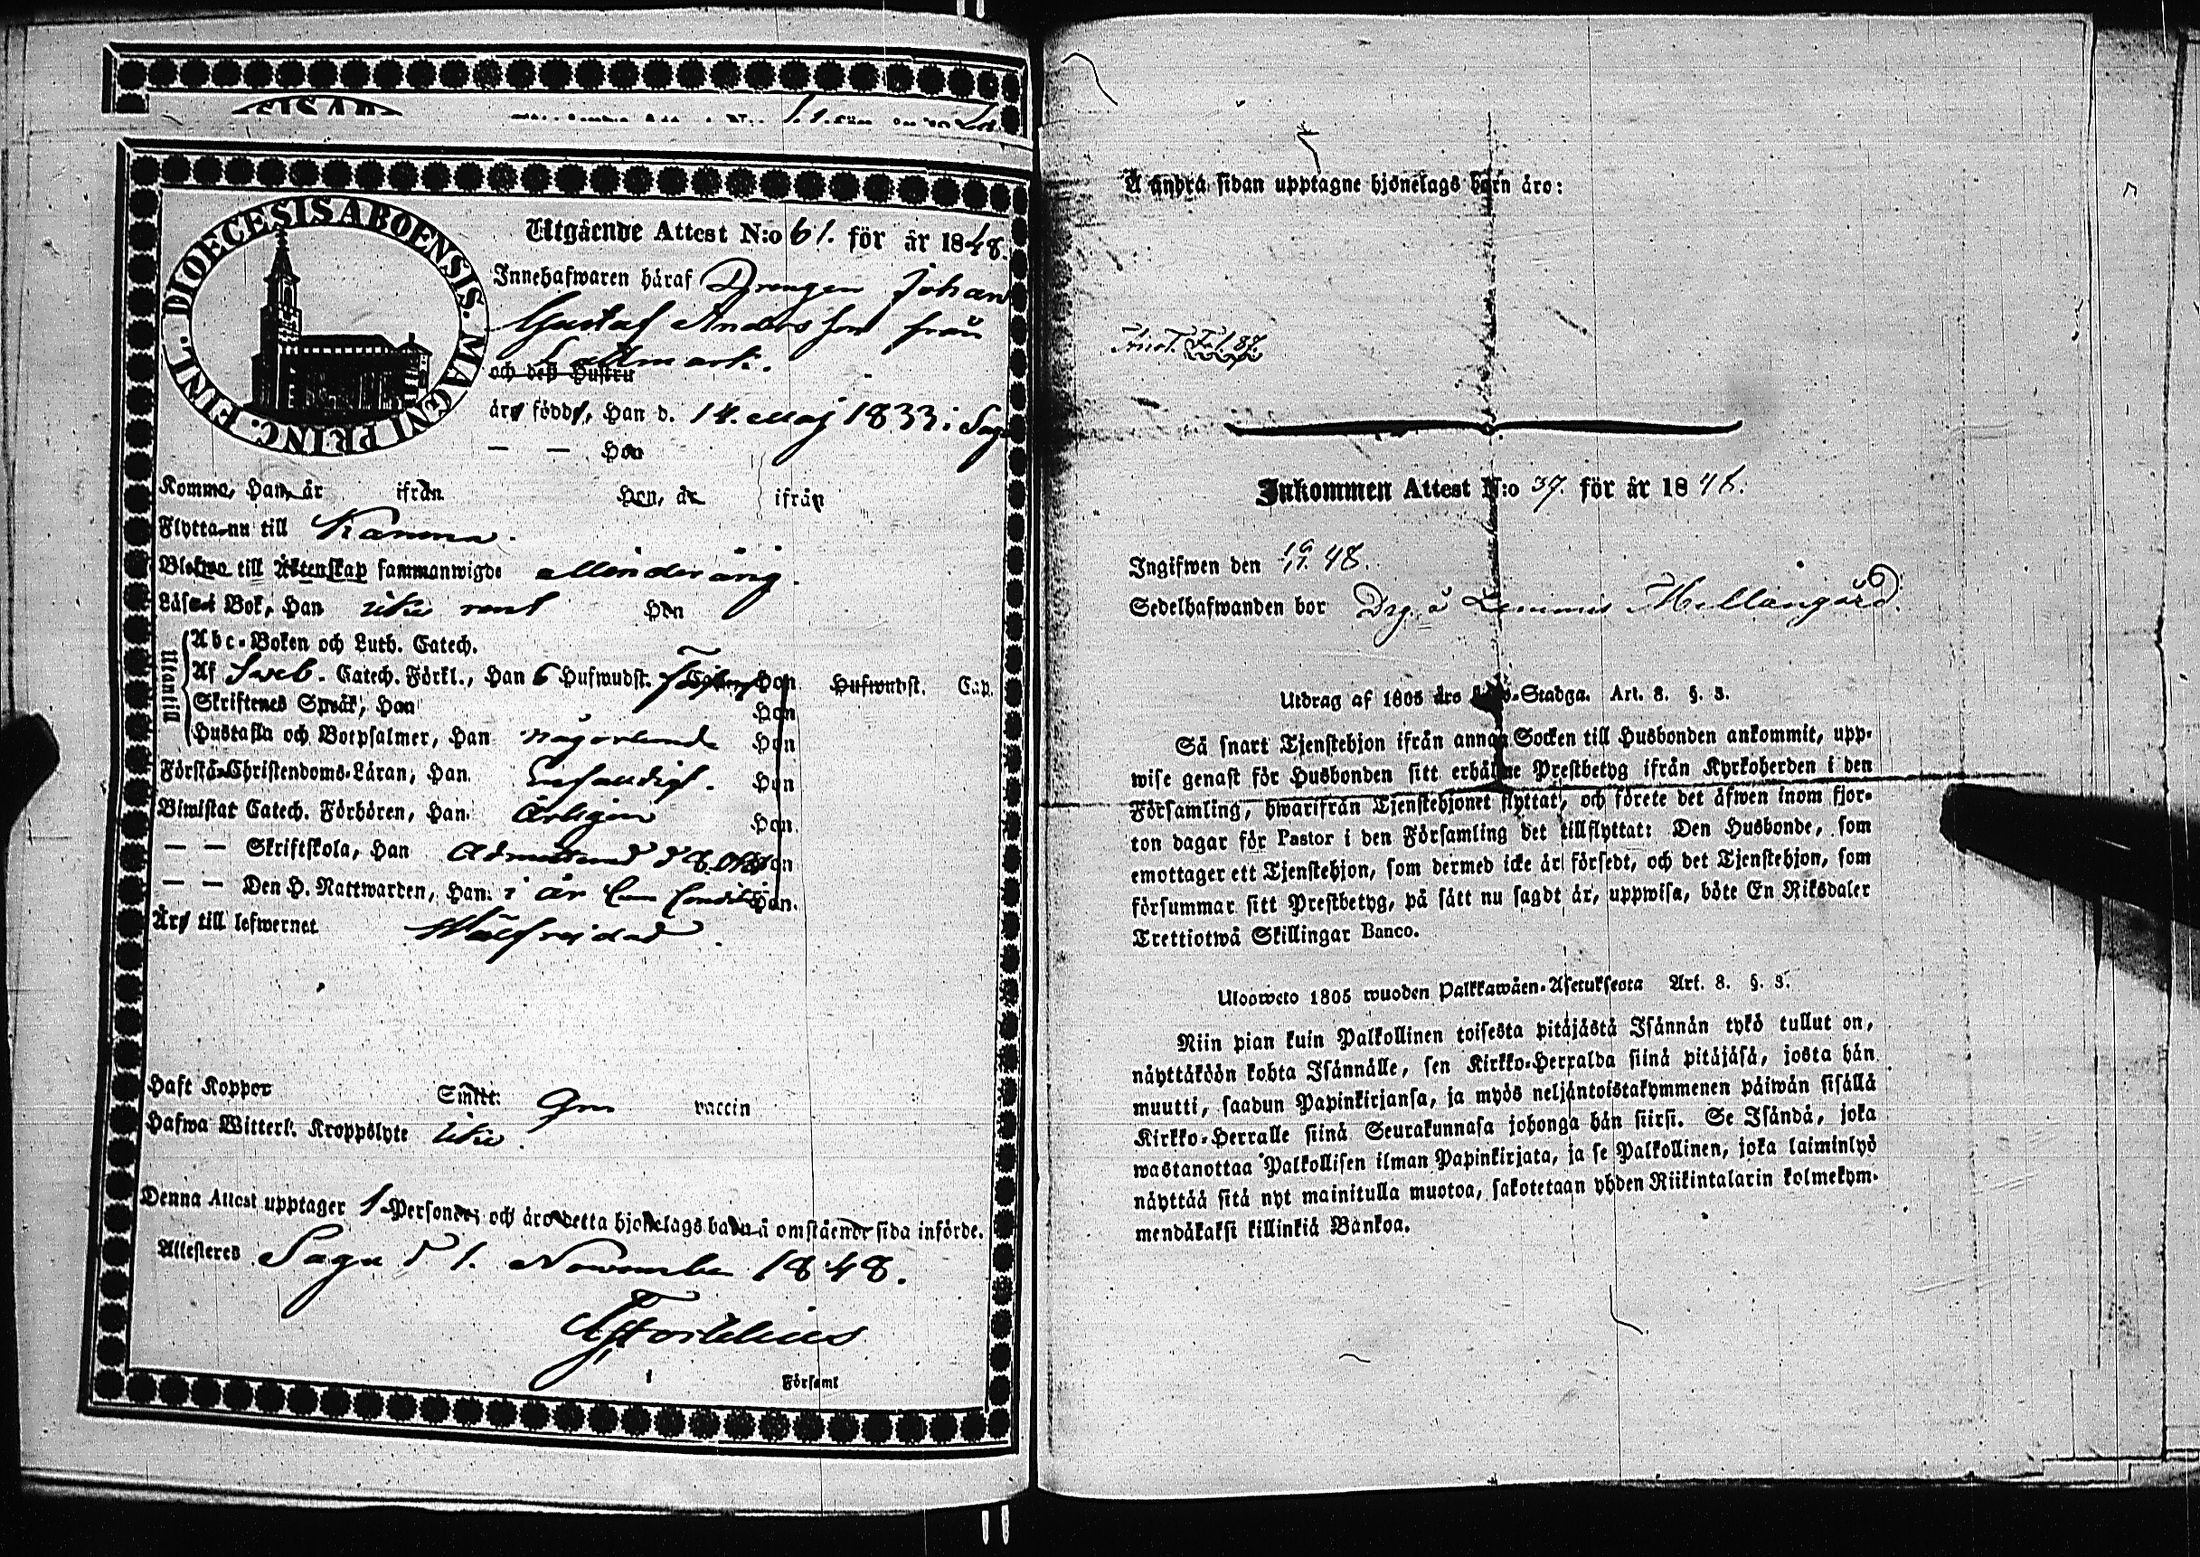 DIOECESIS ABOENSIS. MAGNI PRINC. FINL.
Utgående Attest N:o 61. för år 1848.
Innehafwaren häraf Drengen Johan
Gustaf Andersson från
och deß Hustru
äro födde, Han d. 14. Maj 1833 i Sagu
— — Hon
Komne, Han, år ifrån Hon, år ifrån
Flytta nu till Karuna.
Blefwo till Äktenskap sammanwigde Minderårig.
Läser i Bok, Han icke rent Hon
Utantill
Abc-Boken och Luth. Catech.
Af Sveb. Catech. Förkl., Han 6 Hufwudst. Hon Hufwudst. Cap.
Skriftenes Språk, Han Hon
Hustafla och Botpsalmer, Han någorlunda Hon
Förstå Christendoms-Läran, Han Enfaldigt. Hon
Biwistat Catech. Förhören, Han Årligen Hon.
— — Skriftskola, Han Hon
— — Den H. Nattwarden, Han i år Cum Hon.
Äro till lefwernet Wälfrejdad.
Haft Koppor Smitt. vaccin
Hafwa Witterl. Kroppslyte icke.
Denna Attest upptager 1 Personer; och äro detta hjonelags barn å omstående sida införde.
Attesteras Sagu d 1. November 1848.
i Församl
Å andra sidan upptagne hjonelags barn äro:
Inkommen Attest N:o 37. för år 1848.
Ingifwen den 48.
Sedelhafwanden bor Drg. å Lemmis Mellangård.
Utdrag af 1805 års Stadga. Art. 8. §. 3.
Så snart Tjenstehjon ifrån annan Socken till Husbonden ankommit, upp-
wise genast för Husbonden sitt erhållne Prestbetyg ifrån Kyrkoherden i den
Församling, hwarifrån Tjenstehjonet flyttat, och förete det äfwen inom fjor-
ton dagar för Pastor i den Församling det tillflyttat: Den Husbonde, som
emottager ett Tjenstehjon, som dermed icke är försedt, och det Tjenstehjon, som
försummar sitt Prestbetyg, på sätt nu sagdt är, uppwisa, böte En Riksdaler
Trettiotwå Skillingar Banco.
Uloosweto 1805 wuoden Palkkawäen-Asetuksesta Art. 8. §. 3.
Niin pian kuin Palkollinen toisesta pitäjästä Isännän tykö tullut on,
näyttäköön kohta Isännälle, sen Kirkko-Herralda siinä pitäjäsä, josta hän
muutti, saadun Papinkirjansa, ja myös neljäntoistakymmenen päiwän sisällä
Kirkko-Herralle siinä Seurakunnasa johonga hän siirsi. Se Isändä, joka
wastanottaa Palkollisen ilman Papinkirjata, ja se Palkollinen, joka laiminlyö
näyttää sitä nyt mainitulla muotoa, sakotetaan yhden Riikintalarin kolmekym-
mendäkaksi killinkiä Bankoa.